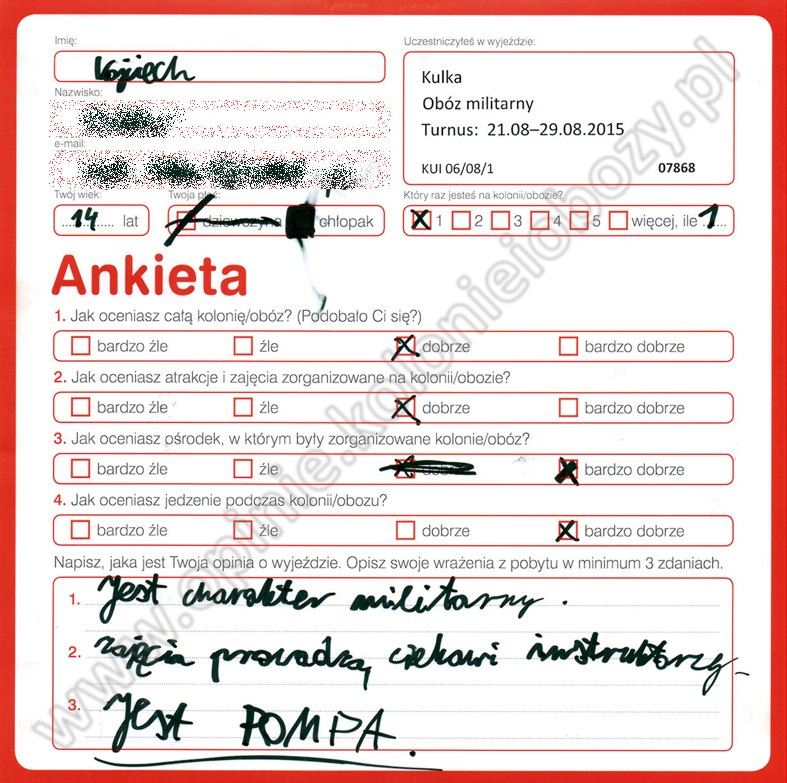 Imię:
Wojciech
Uczestniczyłeś w wyjeździe:
Kulka
Obóz militarny
Turnus: 21.08–29.08.2015
KUI 06/08/1 07868
Nazwisko:
e-mail:
Twój wiek:
14 lat
Twoja płeć:
dziewczyna chłopak
Który raz jesteś na kolonii/obozie?
X 1 2 3 4 5 więcej, ile 1
Ankieta
1. Jak oceniasz całą kolonię/obóz? (Podobało Ci się?)
bardzo źle źle X dobrze bardzo dobrze
2. Jak oceniasz atrakcje i zajęcia zorganizowane na kolonii/obozie?
bardzo źle źle X dobrze bardzo dobrze
3. Jak oceniasz ośrodek, w którym były zorganizowane kolonie/obóz?
bardzo źle źle X dobrze X bardzo dobrze
4. Jak oceniasz jedzenie podczas kolonii/obozu?
bardzo źle źle dobrze X bardzo dobrze
Napisz, jaka jest Twoja opinia o wyjeździe. Opisz swoje wrażenia z pobytu w minimum 3 zdaniach.
1. Jest charakter militarny.
2. zajęcia prowadzą ciekawi instruktorzy
3. Jest POMPA.
www.opinie.kolonieiobozy.pl